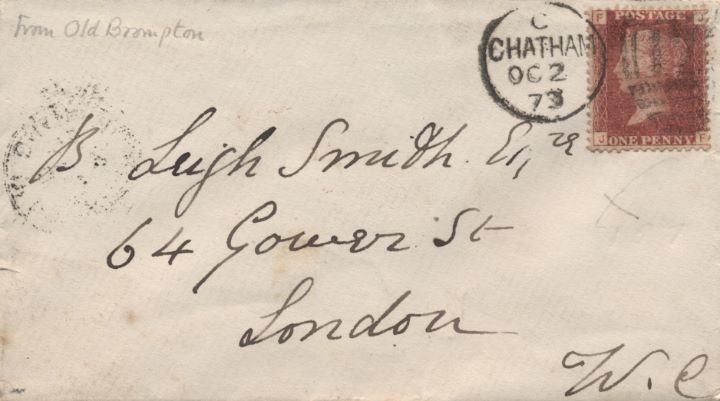 From Old Brompton
C
CHATHAM
OC 2
73
F J
POSTAGE
J F
ONE PENNY
B. Leigh Smith Esqre
64 Gower St
London
W.C